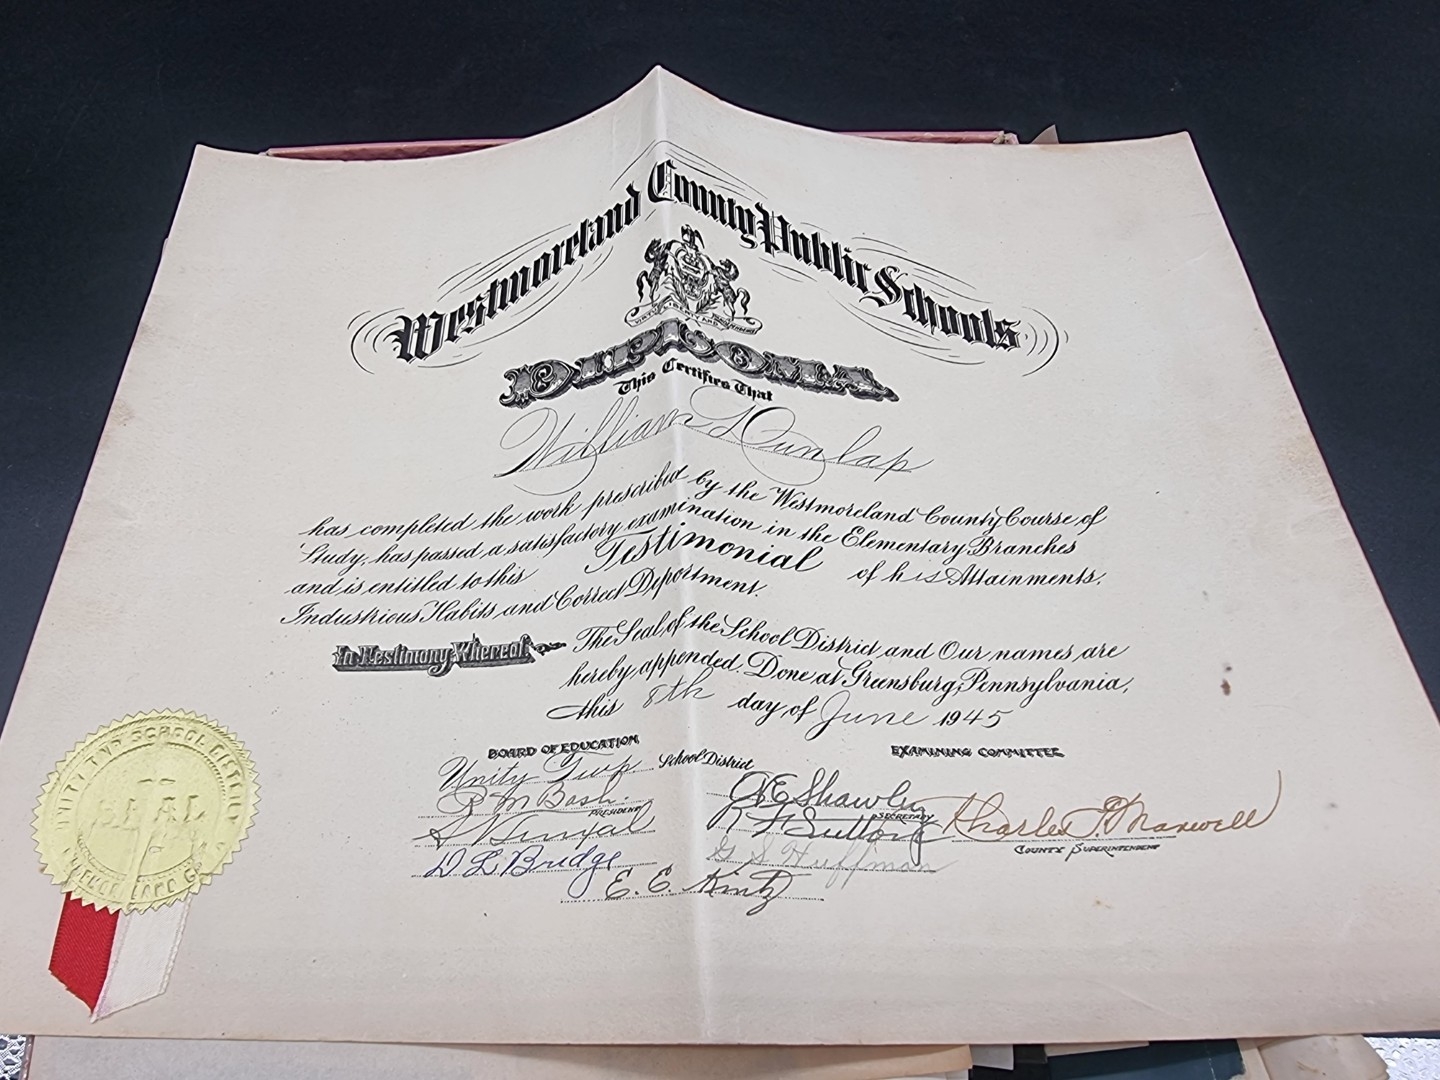 Westmoreland County Public Schools
VIRTUE LIBERTY AND INDEPENDENCE
DIPLOMA
This Certifies That
William Dunlap
has completed the work prescribed by the Westmoreland County Course of
Study, has passed a satisfactory examination in the Elementary Branches
and is entitled to this Testimonial of his Attainments,
Industrious Habits and Correct Deportment.
In Testimony Whereof, The Seal of the School District and Our names are
hereby appended. Done at Greensburg, Pennsylvania,
this 8th day of June 1945
BOARD OF EDUCATION
EXAMINING COMMITTEE
Unity Twp. School District
PRESIDENT
A E Shawley
SECRETARY
Charles F. Maxwell
COUNTY SUPERINTENDENT
D L Bridge
G S Huffman
E. E. Kintz
UNITY TWP SCHOOL DISTRICT
SEAL